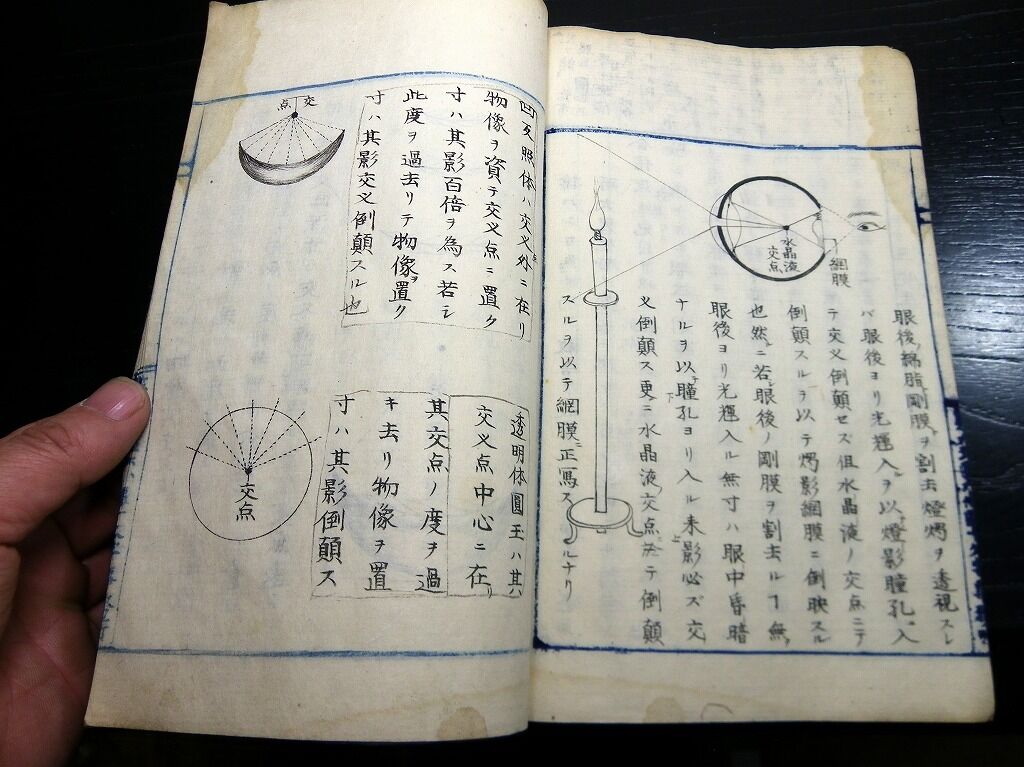 網膜
水晶液
交点
眼後ノ綿脂剛膜ヲ割去燈燭ヲ透視スレ
バ眼後ヨリ光輝入ルヲ以テ燈影瞳孔ニ入
テ交叉倒顛セズ但水晶液ノ交点ニテ
倒顛スルヲ以テ燭影網膜ニ倒映スル
也然ニ若シ眼後ノ剛膜ヲ割去ルヿ無
眼後ヨリ光輝入ル無寸ハ眼中昏暗
ナルヲ以テ瞳孔ヨリ入ル来影必ズ交
叉倒顛ス更ニ水晶液ノ交点ニ於テ倒顛
スルヲ以テ網膜ニ正写スルナリ
凹反照体ハ交叉点外ニ在リ
物像ヲ資テ交叉点ニ置ク
寸ハ其影百倍ヲ為ス若シ
此度ヲ過去リテ物像ヲ置ク
寸ハ其影交叉倒顛スル也
交点
透明体圓玉ハ其
交叉点中心ニ在リ
其交点ノ度ヲ過
キ去リ物像ヲ置
寸ハ其影倒顛ス
交点